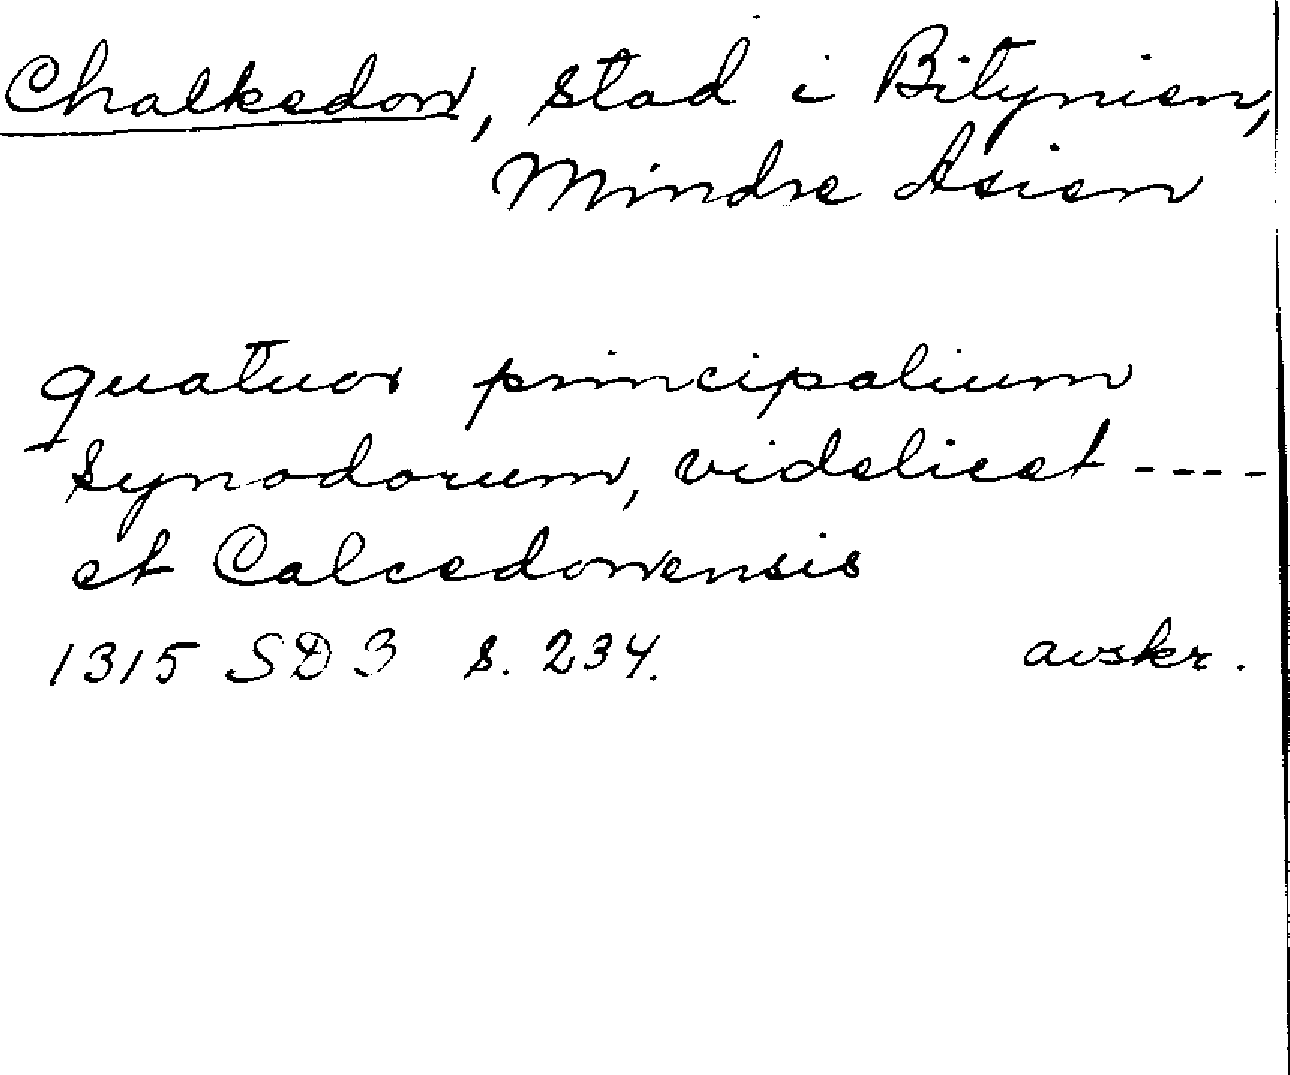 Chalkedon, stad i Bitynien,
Mindre Asien
quatuor principalium
synodorum, videlicet ----
et Calcedonensis
1315 SD 3 s. 234. avskr.